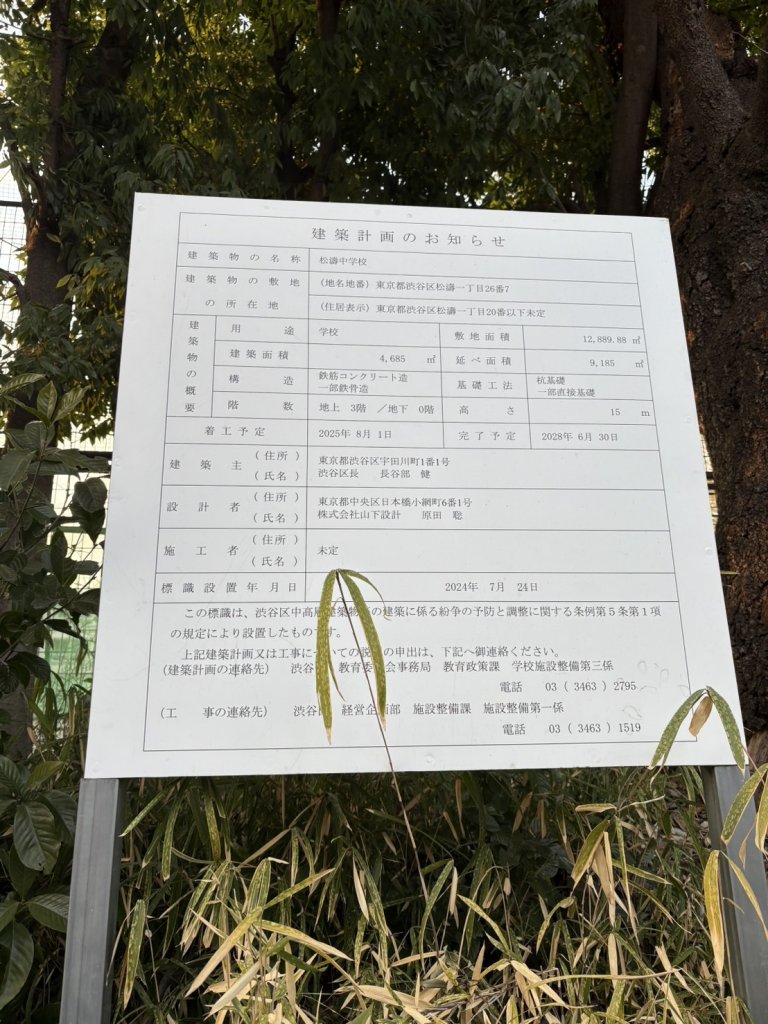 建築計画のお知らせ
建築物の名称 松濤中学校
建築物の敷地の所在地 (地名地番) 東京都渋谷区松濤一丁目26番7
(住居表示) 東京都渋谷区松濤一丁目20番以下未定
建築物の概要 用途 学校 敷地面積 12,889.88 ㎡
建築面積 4,685 ㎡ 延べ面積 9,185 ㎡
構造 鉄筋コンクリート造 一部鉄骨造 基礎工法 杭基礎 一部直接基礎
階数 地上 3階 ／地下 0階 高さ 15 m
着工予定 2025年 8月 1日 完了予定 2028年 6月 30日
建築主 (住所) 東京都渋谷区宇田川町1番1号
(氏名) 渋谷区長 長谷部 健
設計者 (住所) 東京都中央区日本橋小網町6番1号
(氏名) 株式会社山下設計 原田 聡
施工者 (住所) (氏名) 未定
標識設置年月日 2024年 7月 24日
この標識は、渋谷区中高層建築物等の建築に係る紛争の予防と調整に関する条例第5条第1項
の規定により設置したものです。
上記建築計画又は工事についての説明の申出は、下記へ御連絡ください。
(建築計画の連絡先) 渋谷区 教育委員会事務局 教育政策課 学校施設整備第三係
電話 03 ( 3463 ) 2795
(工 事の連絡先) 渋谷区 経営企画部 施設整備課 施設整備第一係
電話 03 ( 3463 ) 1519